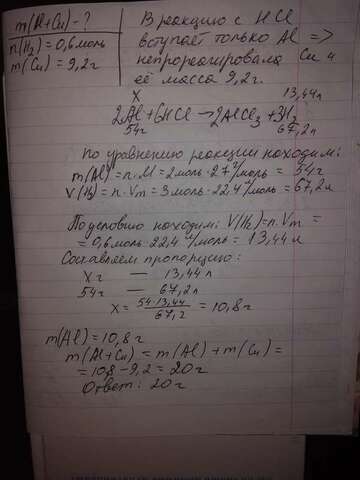 m(Al+Cu) - ?
n(H₂) = 0,6 моль
m(Cu) = 9,2 г
В реакцию с HCl
вступает только Al =>
непрореагировала Cu и
её масса 9,2 г.
x 13,44 л
2Al + 6HCl → 2AlCl₃ + 3H₂
54 г 67,2 л
По уравнению реакции находим:
m(Al) = n·M = 2 моль·27 г/моль = 54 г
V(H₂) = n·Vm = 3 моль·22,4 л/моль = 67,2 л
По условию находим: V(H₂) = n·Vm =
= 0,6 моль·22,4 л/моль = 13,44 л
Составляем пропорцию:
x г — 13,44 л
54 г — 67,2 л
x = 54·13,44 / 67,2 = 10,8 г
m(Al) = 10,8 г
m(Al+Cu) = m(Al) + m(Cu) =
= 10,8 - 9,2 = 20 г
Ответ: 20 г